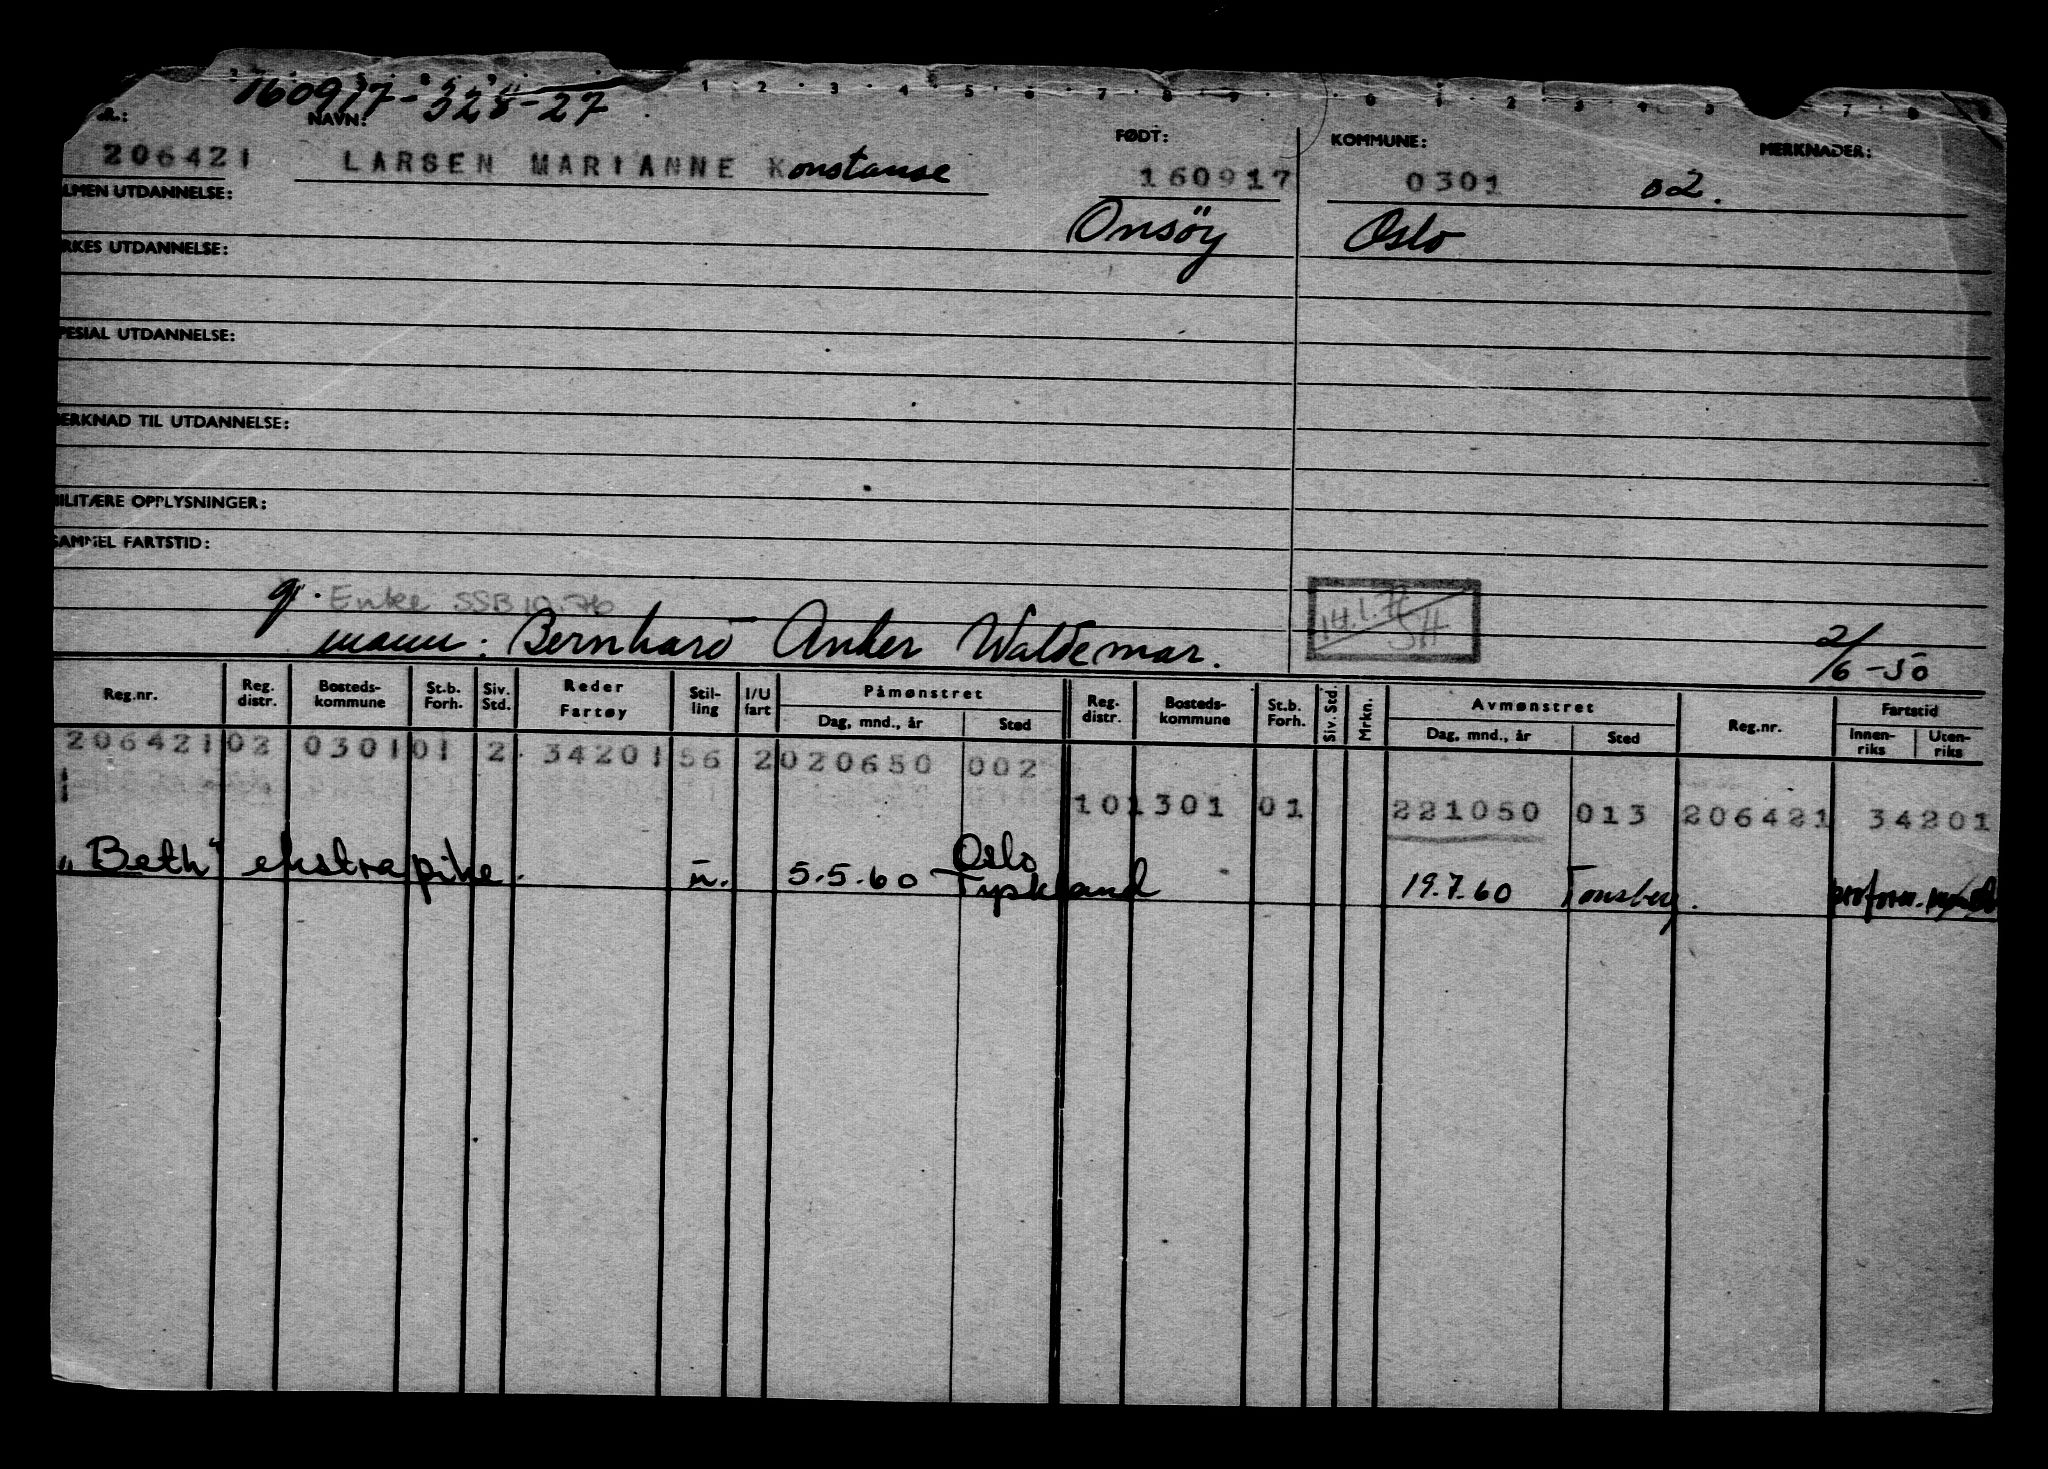 160917-328-27
NAVN: FØDT: KOMMUNE: MERKNADER:
206421 LARSEN MARIANNE Konstanse 160917 0301 02.
LMEN UTDANNELSE:
Onsöy Oslo
RKES UTDANNELSE:
PESIAL UTDANNELSE:
ERKNAD TIL UTDANNELSE:
MILITÆRE OPPLYSNINGER:
SAMMEL FARTSTID:
g. Enke SSB 10.76
mann: Bernhard Anker Waldemar. 2/6-50
Reg.nr. Reg. distr. Bosteds-kommune St.b. Forh. Siv. Std. Reder Fartøy Stil-ling I/U fart Påmønstret Dag, mnd., år Sted Reg. distr. Bosteds-kommune St.b. Forh. Siv. Std. Mrkn. Avmønstret Dag, mnd., år Sted Reg.nr. Fartstid Innen-riks Uten-riks
206421 02 0301 01 2 34201 56 2 020650 002
101301 01 221050 013 206421 34201
"Beth" ekstrapike. u. 5.5.60 Oslo Tyskland 19.7.60 Tønsberg.